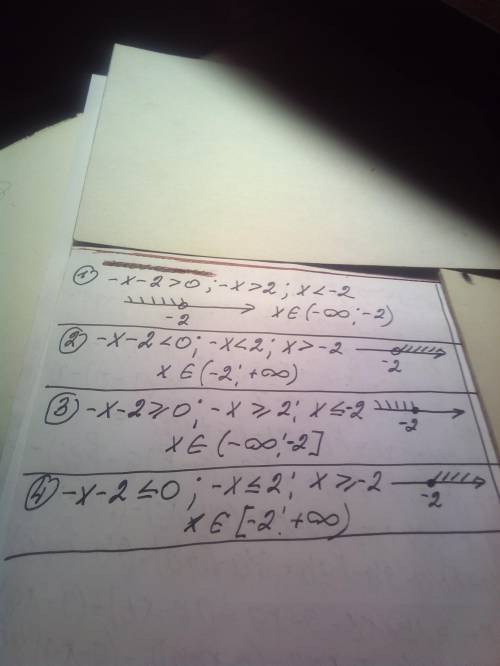 1) -x-2>0; -x>2; x<-2
-2
x∈(-∞;-2)
2) -x-2<0; -x<2; x>-2
-2
x∈(-2;+∞)
3) -x-2⩾0; -x⩾2; x≤-2
-2
x∈(-∞;-2]
4) -x-2≤0; -x≤2; x⩾-2
-2
x∈[-2;+∞)